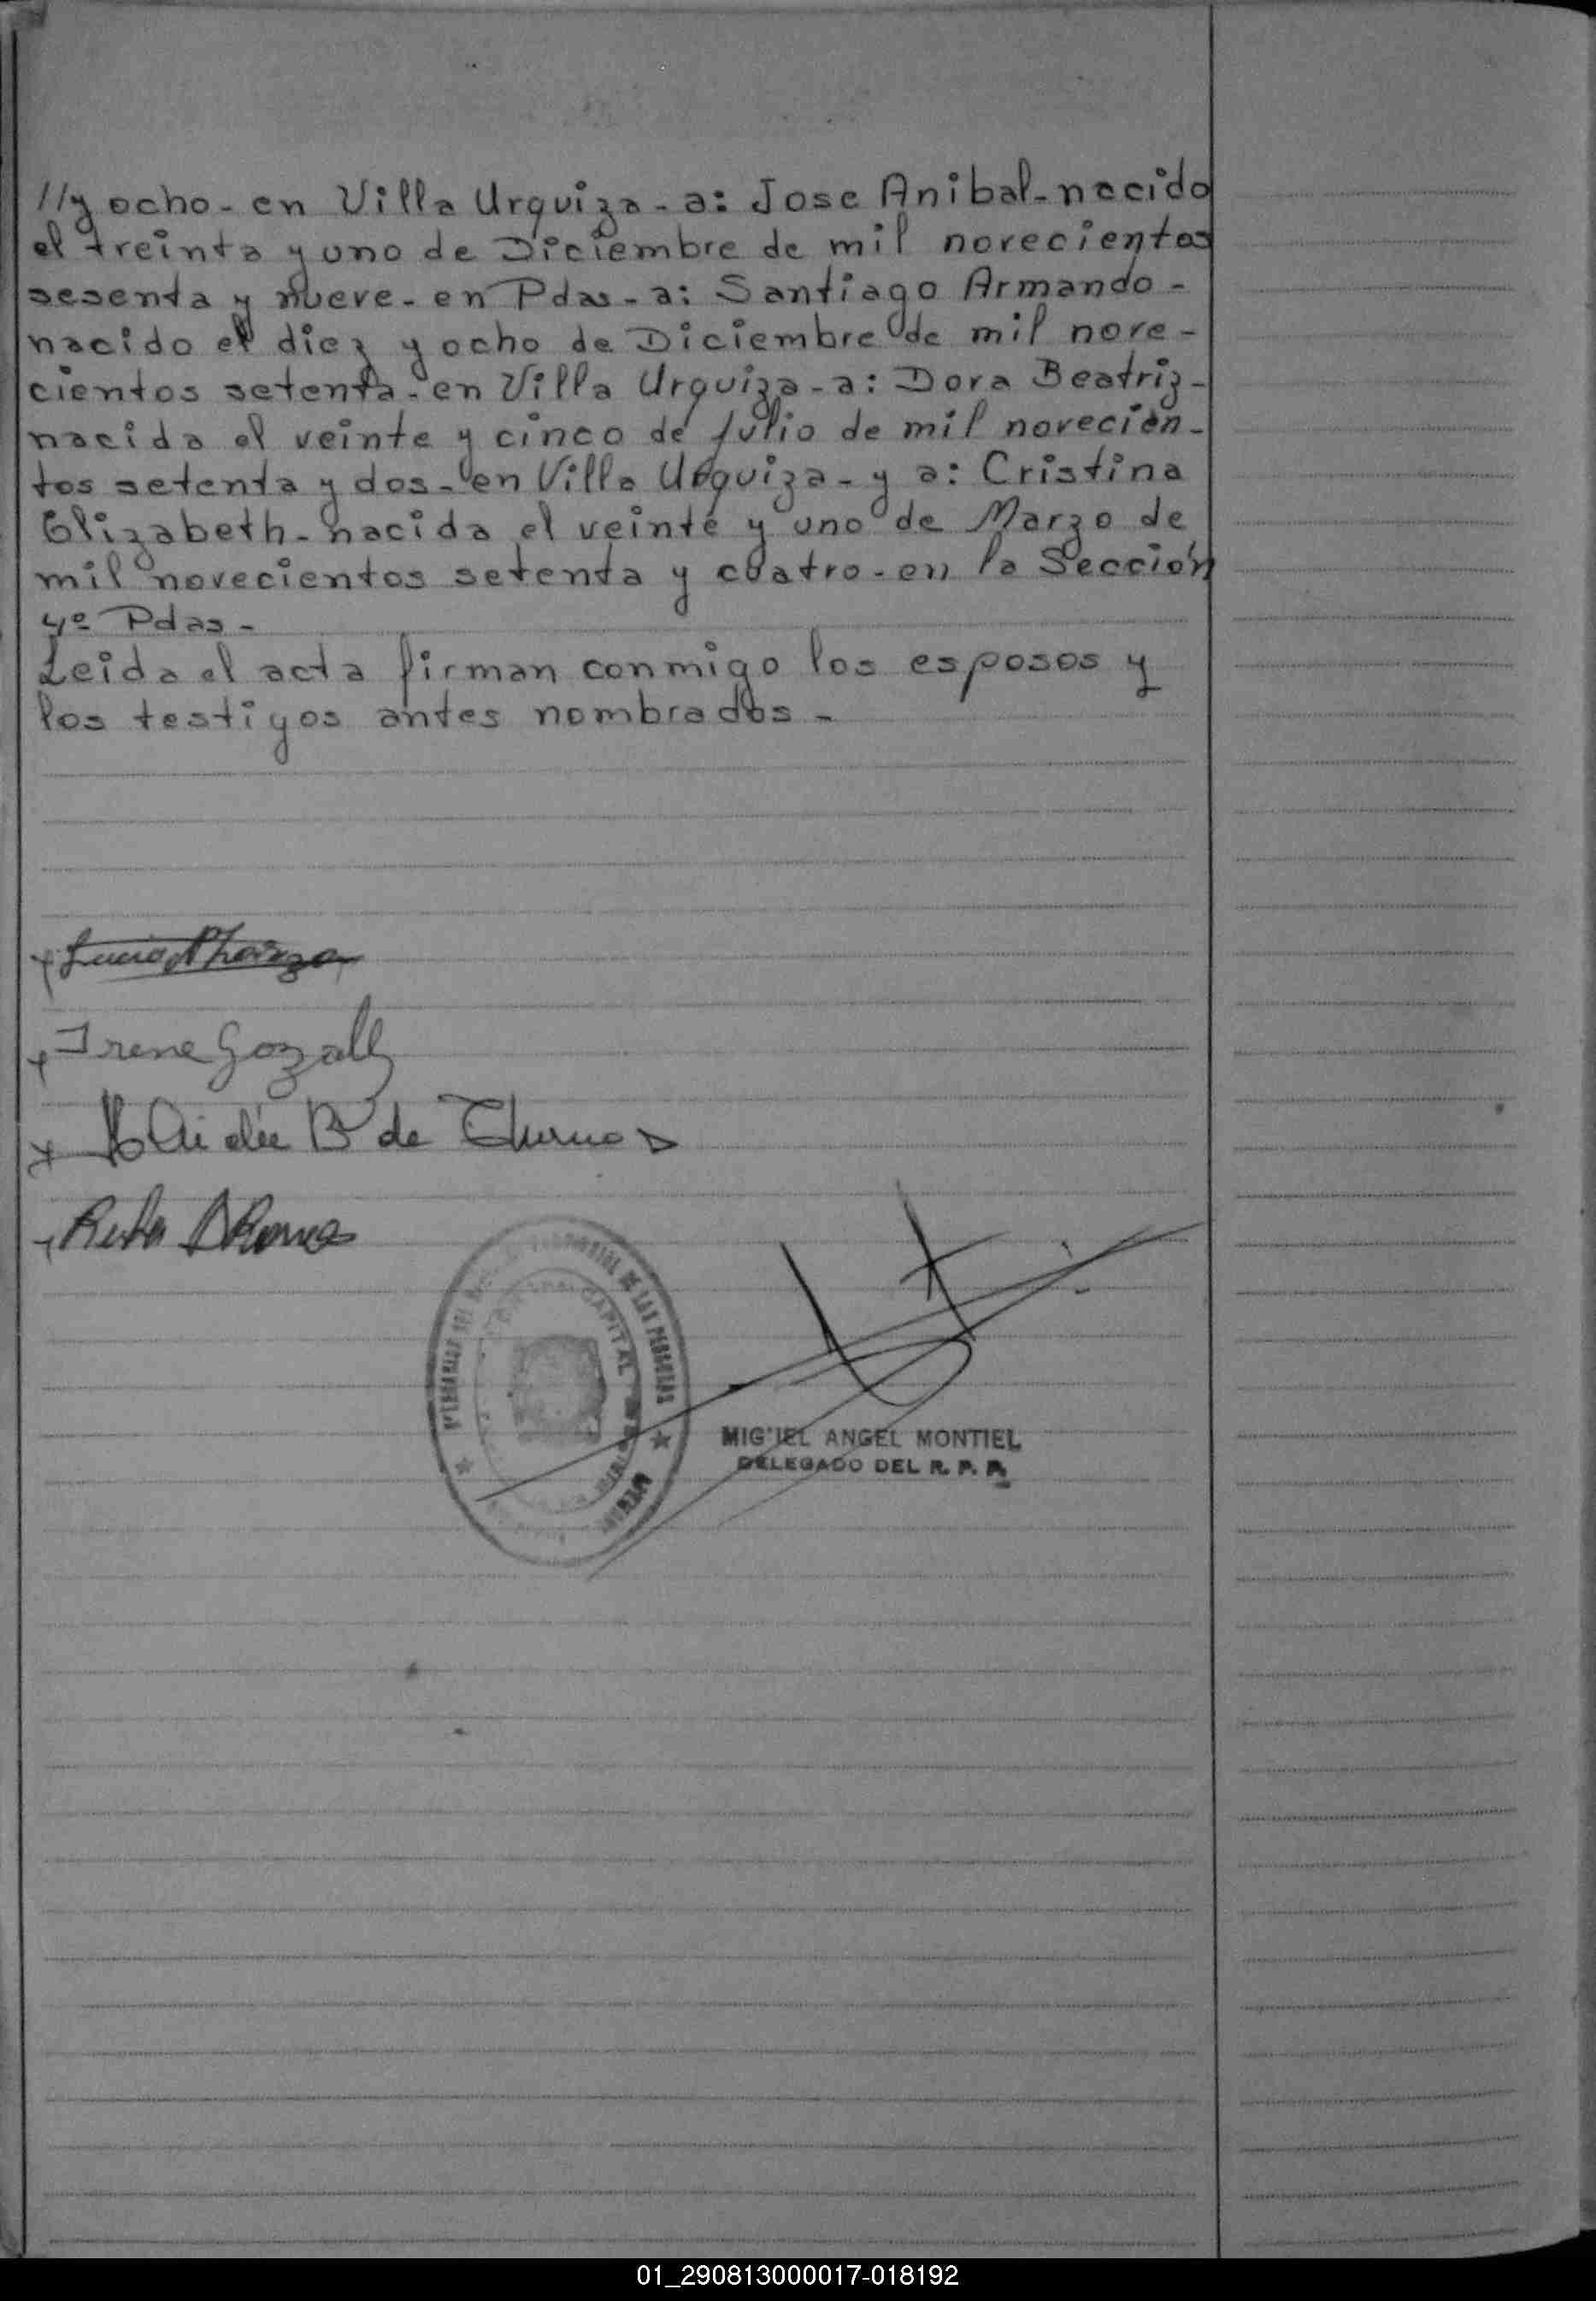 //y ocho - en Villa Urquiza - a: Jose Anibal - nacido
el treinta y uno de Diciembre de mil novecientos
sesenta y nueve - en Pdas - a: Santiago Armando -
nacido el diez y ocho de Diciembre de mil nove-
cientos setenta - en Villa Urquiza - a: Dora Beatriz -
nacida el veinte y cinco de Julio de mil novecien-
tos setenta y dos - en Villa Urquiza - y a: Cristina
Elizabeth - nacida el veinte y uno de Marzo de
mil novecientos setenta y cuatro - en la Sección
4º Pdas -
Leida el acta firman conmigo los esposos y
los testigos antes nombrados -
Irene
B de
DE LAS PERSONAS
CAPITAL
MIGUEL ANGEL MONTIEL
DELEGADO DEL R. P. P.
01_290813000017-018192